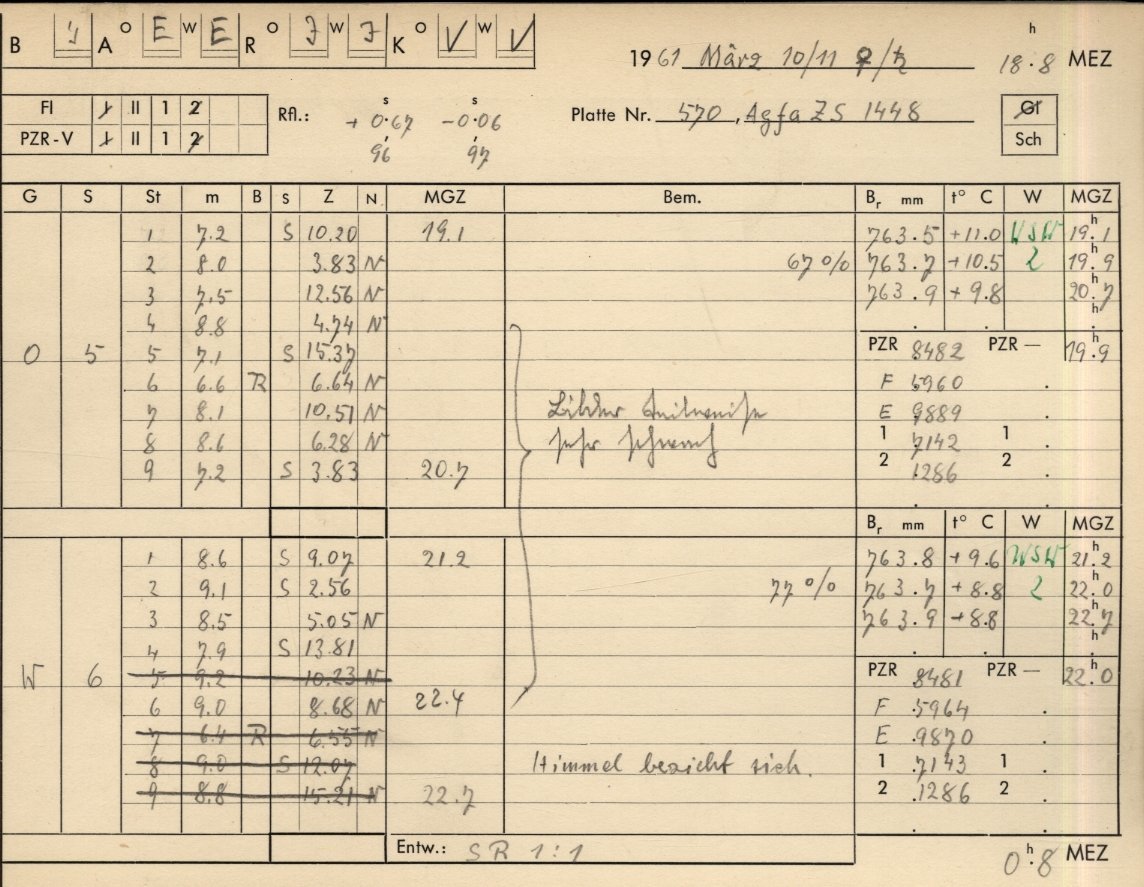 B A O E W E R O J W J K O V W V
1961 März 10/11 ♀/♄ 18 h .8 MEZ
FI I II 1 2
PZR-V I II 1 2
Rfl.: +0 s .67 −0 s .06
96 97
Platte Nr. 570, Agfa ZS 1448
Gl
Sch
G S St m B S Z N MGZ Bem. Br mm t° C W MGZ
1 7.2 S 10.20 19.1 763.5 +11.0 WSW 19 h .1
2 8.0 3.83 N 67 % 763.7 +10.5 2 19 h .9
3 7.5 12.56 N 763.9 +9.8 20 h .7
4 8.8 4.74 N
O 5 5 7.1 S 15.37 PZR 8482 PZR — 19 h .9
6 6.6 R 6.64 N F .5960
7 8.1 10.51 N Bilder teilweise E .9889
8 8.6 6.28 N sehr schwach 1 .7142 1
9 7.2 S 3.83 20.7 2 .1286 2
Br mm t° C W MGZ
1 8.6 S 9.07 21.2 763.8 +9.6 WSW 21 h .2
2 9.1 S 2.56 77 % 763.7 +8.8 2 22 h .0
3 8.5 5.05 N 763.9 +8.8 22 h .7
4 7.9 S 13.81
W 6 5 9.2 10.23 N PZR 8481 PZR — 22 h .0
6 9.0 8.68 N 22.4 F .5964
7 6.4 R 6.55 N E .9870
8 9.0 S 12.07 Himmel bezieht sich. 1 .7143 1
9 8.8 15.21 N 22.7 2 .1286 2
Entw.: SR 1:1 0 h .8 MEZ